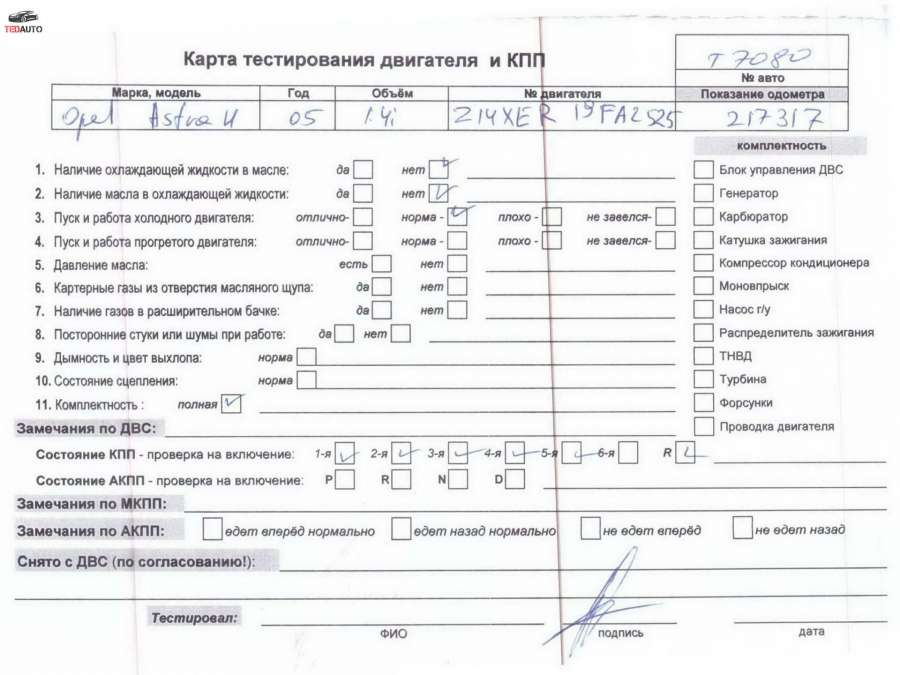 TEDAUTO
Карта тестирования двигателя и КПП
T 7080
№ авто
Марка, модель Год Объём № двигателя Показание одометра
Opel Astra H 05 1.4i Z14XE R 19FA2525 217317
комплектность
1. Наличие охлаждающей жидкости в масле: да нет
Блок управления ДВС
2. Наличие масла в охлаждающей жидкости: да нет
Генератор
3. Пуск и работа холодного двигателя: отлично- норма - плохо - не завелся-
Карбюратор
4. Пуск и работа прогретого двигателя: отлично- норма - плохо - не завелся-
Катушка зажигания
5. Давление масла: есть нет
Компрессор кондиционера
6. Картерные газы из отверстия масляного щупа: да нет
Моновпрыск
7. Наличие газов в расширительном бачке: да нет
Насос г/у
8. Посторонние стуки или шумы при работе: да нет
Распределитель зажигания
9. Дымность и цвет выхлопа: норма
ТНВД
10. Состояние сцепления: норма
Турбина
11. Комплектность : полная
Форсунки
Замечания по ДВС:
Проводка двигателя
Состояние КПП - проверка на включение: 1-я 2-я 3-я 4-я 5-я 6-я R
Состояние АКПП - проверка на включение: P R N D
Замечания по МКПП:
Замечания по АКПП: едет вперёд нормально едет назад нормально не едет вперёд не едет назад
Снято с ДВС (по согласованию!):
Тестировал:
ФИО подпись дата